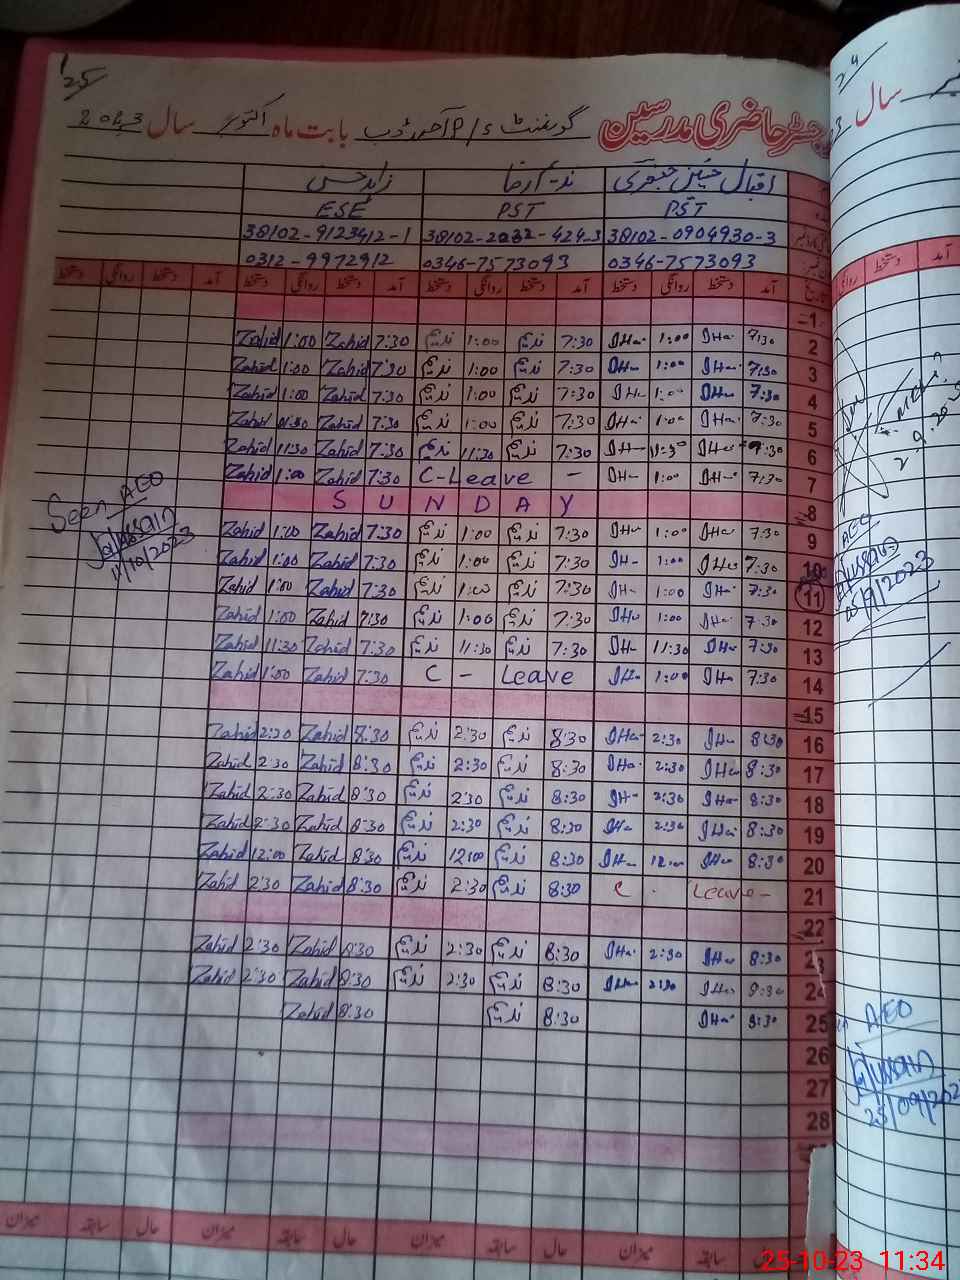 25
رجسٹر حاضری مدرسین گورنمنٹ P/S بابت ماہ اکتوبر سال 2023
اقبال حسین جعفری زاہد حسین
PST PST ESE
38102-0904930-3 38102-2032-424-3 38102-9123412-1
0346-7573093 0346-7573093 0312-9972912
تاریخ آمد دستخط روانگی دستخط آمد دستخط روانگی دستخط آمد دستخط روانگی دستخط آمد دستخط روانگی دستخط
1
2 7:30 1:00 ندیم 7:30 ندیم 1:00 Zahid 7:30 Zahid 1:00
3 7:30 1:00 ندیم 7:30 ندیم 1:00 Zahid 7:30 Zahid 1:00
4 7:30 1:00 ندیم 7:30 ندیم 1:00 Zahid 7:30 Zahid 1:00
5 7:30 1:00 ندیم 7:30 ندیم 1:00 Zahid 7:30 Zahid
6 7:30 11:30 ندیم 7:30 ندیم 11:30 Zahid 7:30 Zahid 11:30
7 7:30 1:00 C-Leave - Zahid 7:30 Zahid 1:00
8 SUNDAY
9 7:30 1:00 ندیم 7:30 ندیم 1:00 Zahid 7:30 Zahid 1:00
10 7:30 1:00 ندیم 7:30 ندیم 1:00 Zahid 7:30 Zahid 1:00
11 7:30 1:00 ندیم 7:30 ندیم 1:00 Zahid 7:30 Zahid 1:00
12 7:30 1:00 ندیم 7:30 ندیم 1:00 Zahid 7:30 Zahid 1:00
13 7:30 11:30 ندیم 7:30 ندیم 11:30 Zahid 7:30 Zahid 11:30
14 7:30 1:00 C - Leave Zahid 7:30 Zahid 1:00
15
16 8:30 2:30 ندیم 8:30 ندیم 2:30 Zahid 8:30 Zahid 2:30
17 8:30 2:30 ندیم 8:30 ندیم 2:30 Zahid 8:30 Zahid 2:30
18 8:30 2:30 ندیم 8:30 ندیم 2:30 Zahid 8:30 Zahid 2:30
19 8:30 2:30 ندیم 8:30 ندیم 2:30 Zahid 8:30 Zahid 2:30
20 8:30 12:00 ندیم 8:30 ندیم 12:00 Zahid 8:30 Zahid 12:00
21 C - Leave - ندیم 8:30 ندیم 2:30 Zahid 8:30 Zahid 2:30
22
23 8:30 2:30 ندیم 8:30 ندیم 2:30 Zahid 8:30 Zahid 2:30
24 8:30 2:30 ندیم 8:30 ندیم 2:30 Zahid 8:30 Zahid 2:30
25 8:30 ندیم 8:30 Zahid 8:30
26
27
28
Seen AEO
11/10/2023
سابقہ میزان حال سابقہ میزان حال سابقہ میزان حال سابقہ میزان
24
سال
آمد دستخط روانگی
AEO
AEO
25/09/202
25-10-23 11:34